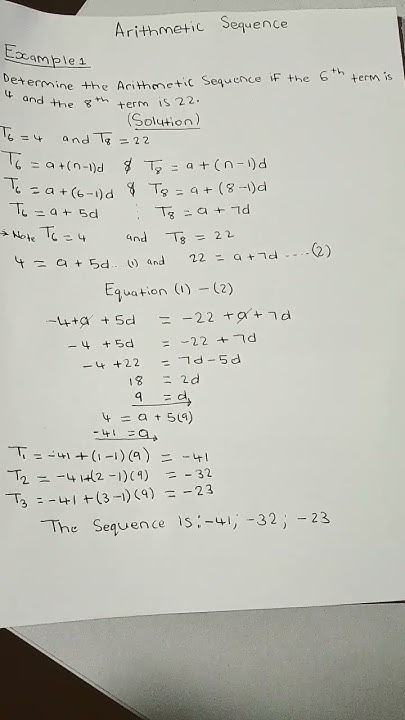 Arithmetic Sequence
Example 1
Determine the Arithmetic Sequence if the 6th term is
4 and the 8th term is 22.
(Solution)
T6 = 4 and T8 = 22
T6 = a+(n-1)d & T8 = a + (n-1)d
T6 = a+(6-1)d & T8 = a + (8-1)d
T6 = a + 5d ; T8 = a + 7d
→ Note T6 = 4 and T8 = 22
4 = a + 5d .. (1) and 22 = a + 7d .....(2)
Equation (1) - (2)
-4+a + 5d = -22 + a + 7d
-4 + 5d = -22 + 7d
-4 + 22 = 7d - 5d
18 = 2d
9 = d
4 = a + 5(9)
-41 = a
T1 = -41 + (1-1)(9) = -41
T2 = -41+(2-1)(9) = -32
T3 = -41 + (3-1)(9) = -23
The Sequence is: -41; -32; -23